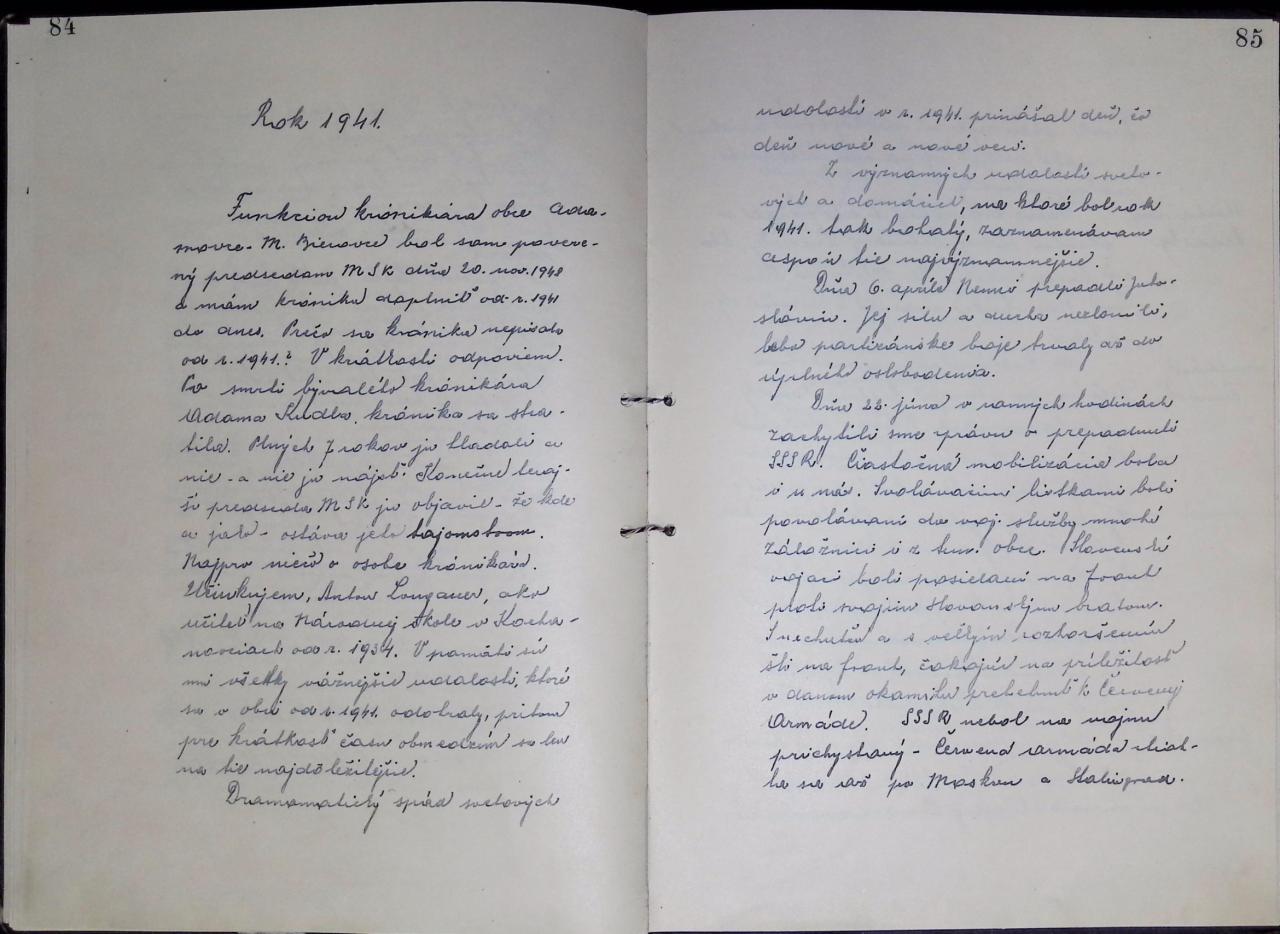 84
Rok 1941.
Funkciou kronikára obce Ada-
movce - M. Bierovce bol som povere-
ný predsedom MSK dňa 20. nov. 1948
a mám kroniku doplniť od r. 1941
do dnes. Prečo sa kronika nepísala
od r. 1941.? V krátkosti odpoviem.
Po smrti bývalého kronikára
Adama Kudlu, kronika sa stra-
tila. Plných 7 rokov ju hladali a
nie - a nie ju nájsť. Konečne teraj-
ší predseda MSK ju objavil - že kde
a jako - ostáva jeho tajomstvom.
Najprv niečo o osobe kronikára.
Účinkujem, Anton Longauer, ako
učiteľ na Národnej škole v Kocha-
novciach od r. 1934. V pamäti sú
mi všetky vážnejšie udalosti, ktoré
sa v obci od r. 1941. odohraly, pritom
pre krátkosť času obmedzím sa len
na tie najdôležitejšie.
Dramamatický spád svetových
85
udalostí v r. 1941. prinášal deň, čo
deň nové a nové veci.
Z významných udalostí sveto-
vých a domácich, na ktoré bol rok
1941. tak bohatý, zaznamenávam
aspoň tie najvýznamnejšie.
Dňa 6. apríla Nemci prepadli Juho-
sláviu. Jej silu a ducha nezlomili,
lebo partizánske boje trvaly až do
úplného oslobodenia.
Dňa 22. júna v ranných hodinách
zachytili sme zprávu o prepadnutí
SSSR. Čiastočná mobilizácia bola
i u nás. Svolávacími lístkami boli
povolávaní do voj. služby mnohí
záložníci i z tun. obce. Slovenskí
vojaci boli posielaní na front
proti svojim slovanským bratom.
S nechuťou a s veľkým roztorčením
šli na front, čakajúc na príležitosť
v danom okamihu prebehnúť k Červenej
Armáde. SSSR nebol na vojnu
prichystaný - Červená armáda stiah-
la sa až po Moskvu a Stalingrad.